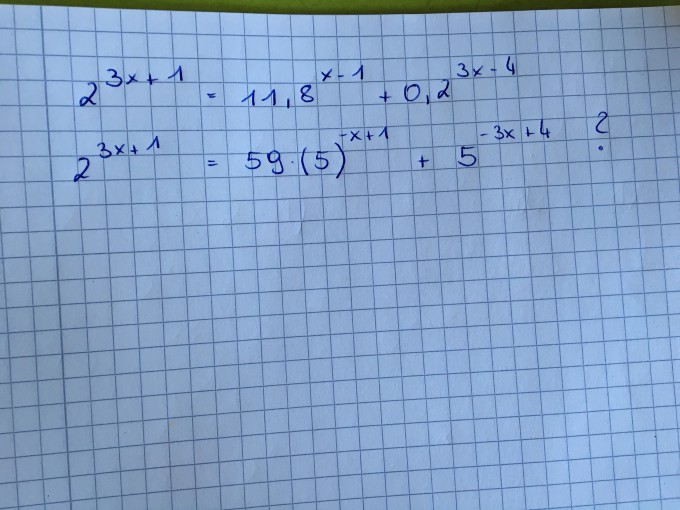 2^{3x+1} = 11,8^{x-1} + 0,2^{3x-4}
2^{3x+1} = 59·(5)^{-x+1} + 5^{-3x+4} ?